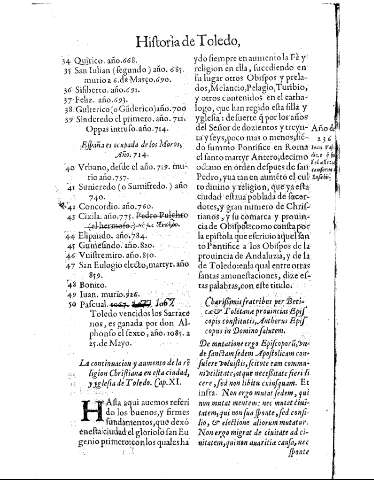 Historia de Toledo,
34 Quirico. año.668.
35 San Iulian (segundo) año. 685.
murio a 6. de Março, 690.
36 Sisiberto. año. 691.
37 Feliz. año. 693.
38 Gulterico (o Gūderico) año. 700
39 Sinderedo el primero. año. 712.
Oppas intruso. año. 714.
España es ocupada de los Moros,
Año. 714.
40 Vrbano, desde el año. 719. murio
año. 757.
41 Sunieredo (o Sumifredo.) año
740.
42 Concordio. año. 760.
43 Cixila. año. 775. Pedro Pulchro
(el hermoso)
44 Elipando. año. 784.
45 Gumesindo. año. 820.
46 Vvistremiro. año. 850.
47 San Eulogio electo, martyr. año
859.
48 Bonito.
49 Iuan. murio. 926.
50 Pascual. 1067.
Toledo vencidos los Sarracenos,
es ganada por don Alphonso
el sexto, año. 1085. a
25. de Mayo.
La continuacion y aumento de la religion
Christiana en esta ciudad,
y yglesia de Toledo. Cap. XI.
HAsta aqui auemos referido
los buenos, y firmes
fundamentos, que dexò
en esta ciudad el glorioso san Eugenio
primero: con los quales ha
ydo siempre en aumento la Fè y
religion en ella, sucediendo en
su lugar otros Obispos y prelados,
Melancio, Pelagio, Turibio,
y otros contenidos en el cathalogo,
que han regido esta silla y
yglesia: desuerte q̃ por los años
del Señor de dozientos y treynta
y seys, poco mas o menos, siendo
summo Pontifice en Roma
el santo martyr Antero, decimo
octauo en orden despues de san
Pedro, yua en aumento el culto
diuino y religion, que ya esta
ciudad estaua poblada de sacerdotes,
y gran numero de Christianos,
y su comarca y prouincia
de Obispos: como consta por
la epistola que escriuio aquel santo
Pontifice a los Obispos de la
prouincia de Andaluzia, y de la
de Toledo: en la qual entre otras
santas amonestaciones, dize estas
palabras, con este titulo.
Año de
236
Charissimis fratribus per Beticæ
& Toletanæ prouincias Episcopis
constitutis, Antherus Episcopus
in Domino salutem.
De mutatione ergo Episcoporū, vnde
sanctam sedem Apostolicam consulere
voluistis, scitote eam communi
vtilitate, atque necessitate fieri dicere,
sed non libitu cuiusquam. Et
infra. Non ergo mutat sedem, qui
non mutat mentem: nec mutat ciuitatem,
qui non sua sponte, sed consilio,
& electione aliorum mutatur.
Non ergo migrat de ciuitate ad ciuitatem,
qui non auaritiæ causa, nec
sponte